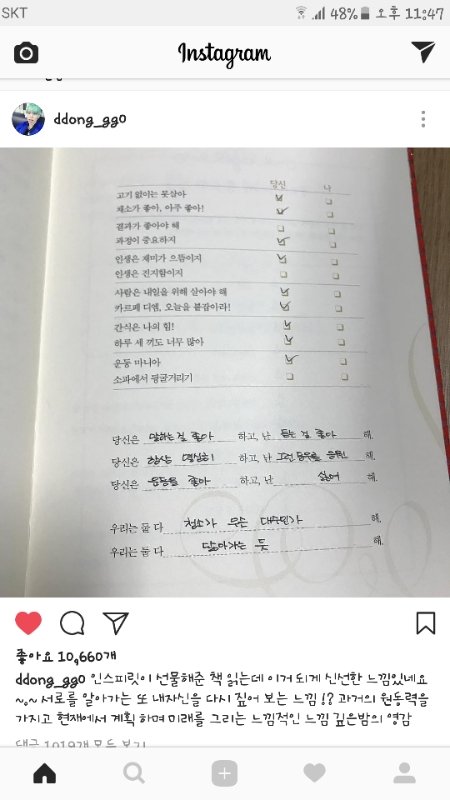 SKT 48% 오후 11:47
Instagram
ddong_gg0
당신 나
고기 없이는 못살아
채소가 좋아, 아주 좋아!
결과가 좋아야 해
과정이 중요하지
인생은 재미가 으뜸이지
인생은 진지함이지
사람은 내일을 위해 살아야 해
카르페 디엠, 오늘을 붙잡이라!
간식은 나의 힘!
하루 세 끼도 너무 많아
운동 마니아
소파에서 뒹굴거리기
당신은 말하는 걸 좋아 하고, 난 듣는 걸 좋아 해.
당신은 항상 열심히 하고, 난 그런 동우를 응원 해.
당신은 운동을 좋아 하고, 난 싫어 해.
우리는 둘 다 청소가 무슨 대수인가 해.
우리는 둘 다 닮아가는 듯 해.
좋아요 10,660개
ddong_gg0 인스피릿이 선물해준 책 읽는데 이거 되게 신선한 느낌있네요
~,~ 서로를 알아가는 또 내자신을 다시 짚어 보는 느낌!? 과거의 원동력을
가지고 현재에서 계획 하며 미래를 그리는 느낌적인 느낌 깊은밤의 영감
댓글 1019개 모두 보기